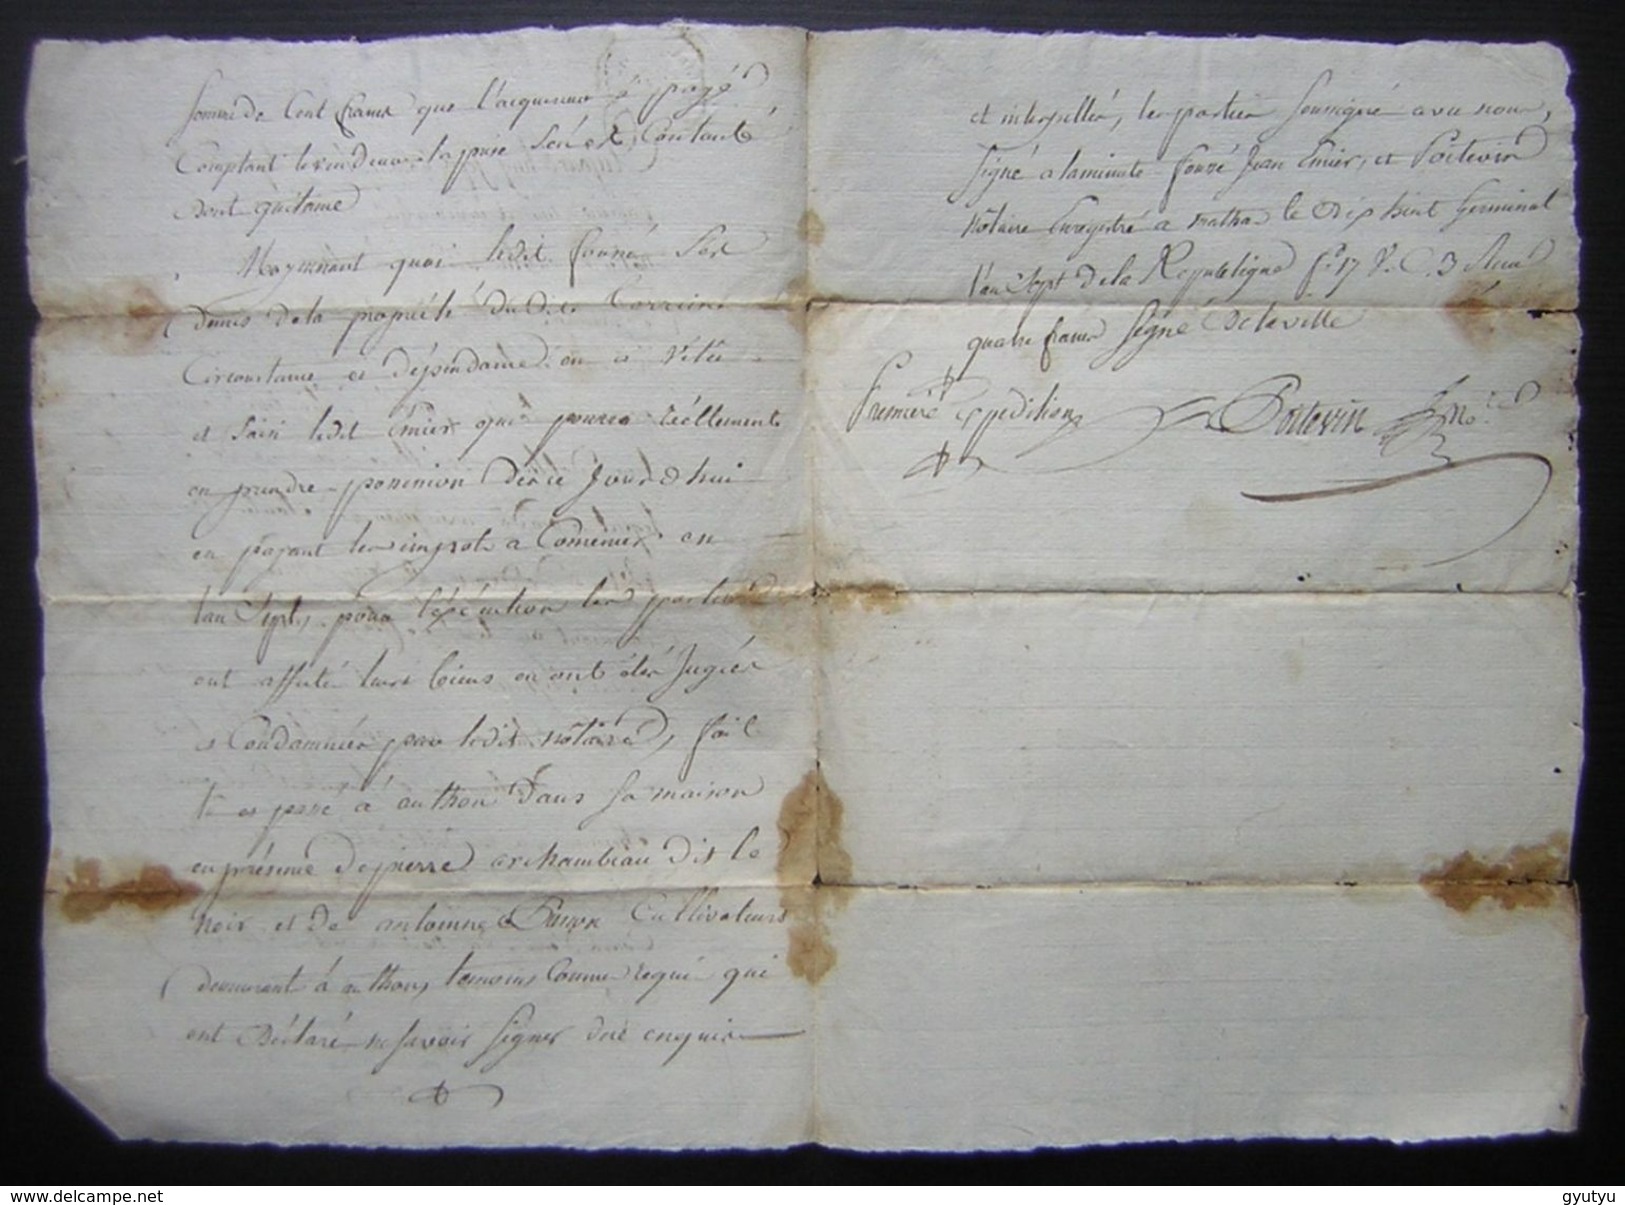 somme de Cent francs que l'acquereur a payé
Comptant le vendeur la prise Séel Contanté
dont quitame
Moyennant quoi ledit fourré Ses
demis de la propriété dudit terrein
Circonstance et dépendance en a vétu
et Saisi ledit Émier qui pourra réellement
en prendre possession dès ce Jourd'hui
en payant les impots à Commencer en
l'an Sept, pour l'exécution les parties
ont affecté leurs biens en ont étés Jugiés
et Condamnés par ledit notaire, fait
et passé à authon dans sa maison
en présence de pierre archambeau dit le
noir et de antoinne Cultivateurs
demeurant à authon, temoins Connu requi qui
ont Déclaré ne savoir Signer duë enquis
et interpellés, les parties Soussigné avec nous,
Signé a la minute fourré Jean Émier, et Poitevin
notaire Enregistré a matha le dix huit Germinal
l'an Sept de la Republique f° 17 V. C. 3 Recu
quatre francs Signé Deleville
Premiere Expedition Poitevin No.re
delcampe.net
gyutyu